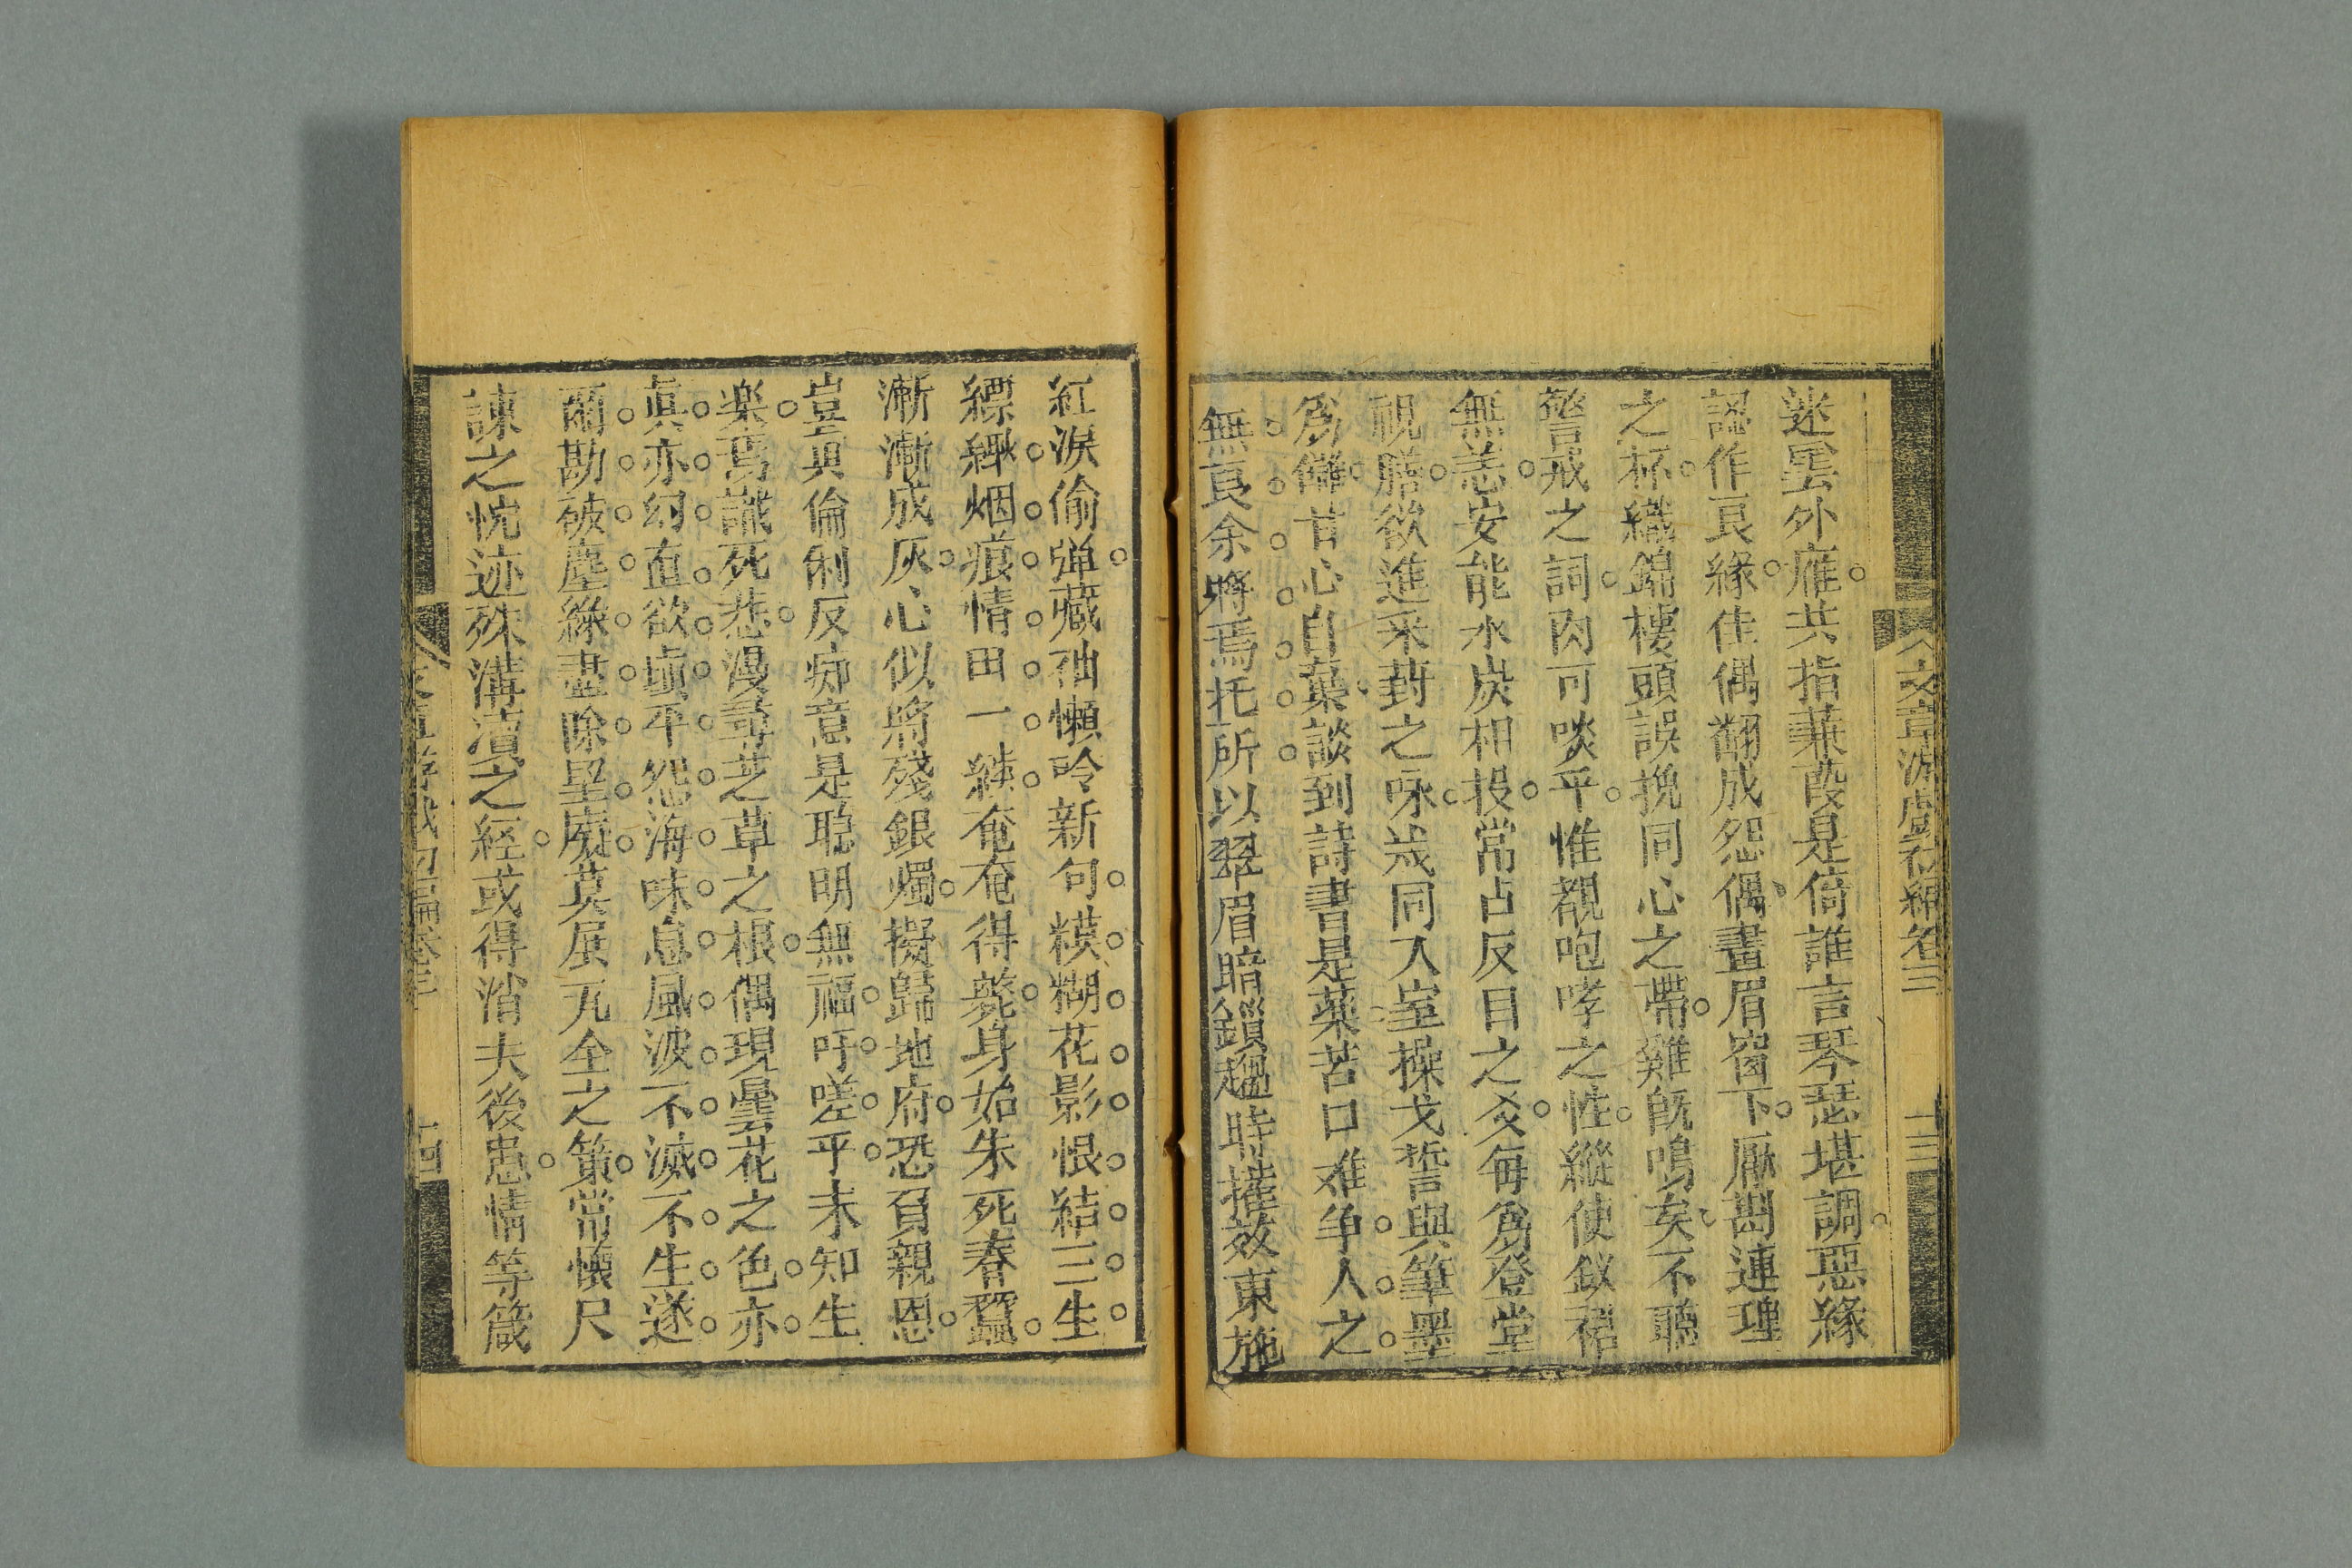 文章游戲初編卷三 十三
迷雲外雁共指蒹葭是倚誰言琴瑟堪調惡緣
認作良緣佳偶翻成怨偶畫眉窗下厭葛連理
之杯織錦樓頭誤挽同心之帶雞旣鳴矣不聽
警戒之詞肉可啖乎惟覩咆哮之性縱使釵裙
無恙安能氷炭相投常占反目之爻每爲登堂
視膳欲進采葑之咏歲同入室操戈誓與筆墨
爲讎甘心自棄談到詩書是藥苦口难争人之
無良余將焉托所以翠眉暗鎖趨時㩴效東施
紅淚偷弹藏袖懶吟新句糢糊花影恨結三生
縹緲烟痕情田一綫奄奄得斃身始朱死春蠶
漸漸成灰心似將殘銀燭擬歸地府恐負親恩
豈真倫俐反痴意是聪明無福吁嗟乎未知生
楽焉識死悲漫尋芝草之根偶現曇花之色亦
真亦幻直欲塡平怨海味息風波不滅不生遂
爾勘破塵緣盡除星𪠘莫展瓦全之策常懐尺
諫之忱迹殊溝瀆之経或得消夫後患情等箴
文章游戲初編卷三 十四